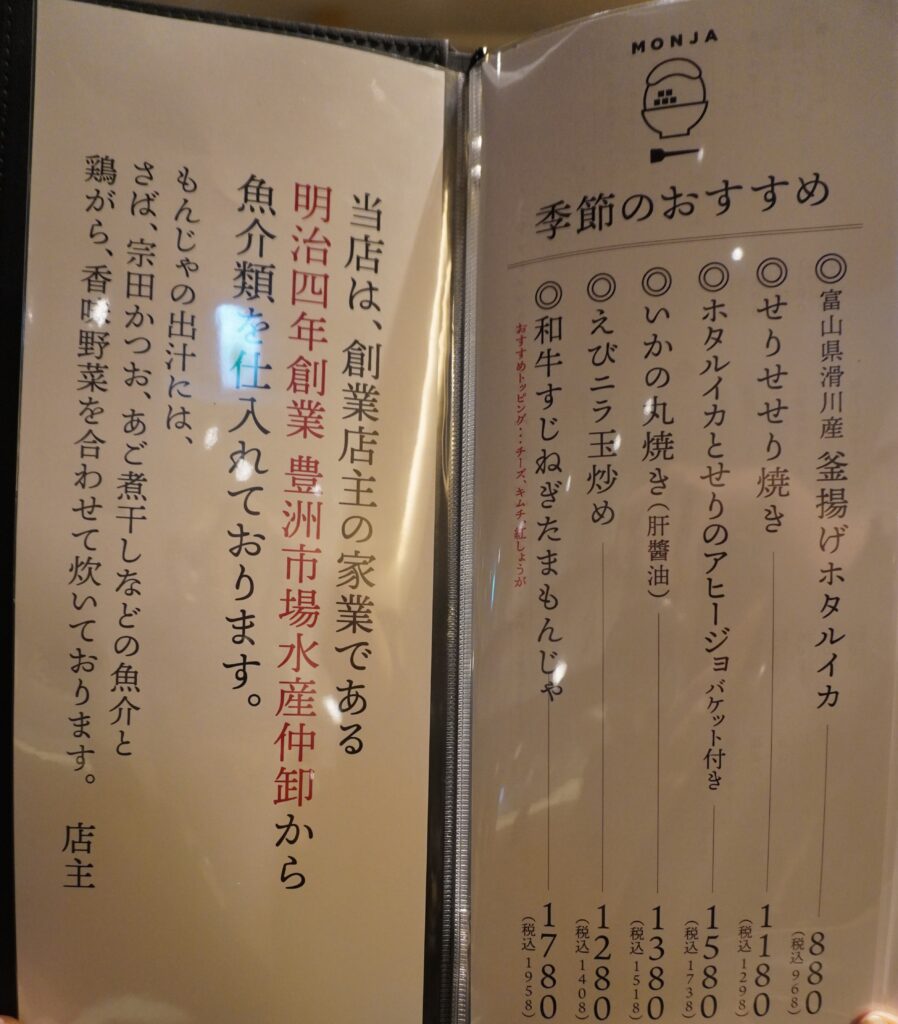 MONJA
季節のおすすめ
◎富山県滑川産 釜揚げホタルイカ 880
(税込 968)
◎せりせせり焼き 1180
(税込 1298)
◎ホタルイカとせりのアヒージョ バケット付き 1580
(税込 1738)
◎いかの丸焼き(肝醬油) 1380
(税込 1518)
◎えびニラ玉炒め 1280
(税込 1408)
◎和牛すじねぎたまもんじゃ 1780
(税込 1958)
おすすめトッピング・・・チーズ、キムチ、紅しょうが
当店は、創業店主の家業である
明治四年創業 豊洲市場水産仲卸から
魚介類を仕入れております。
もんじゃの出汁には、
さば、宗田かつお、あご煮干しなどの魚介と
鶏がら、香味野菜を合わせて炊いております。 店主